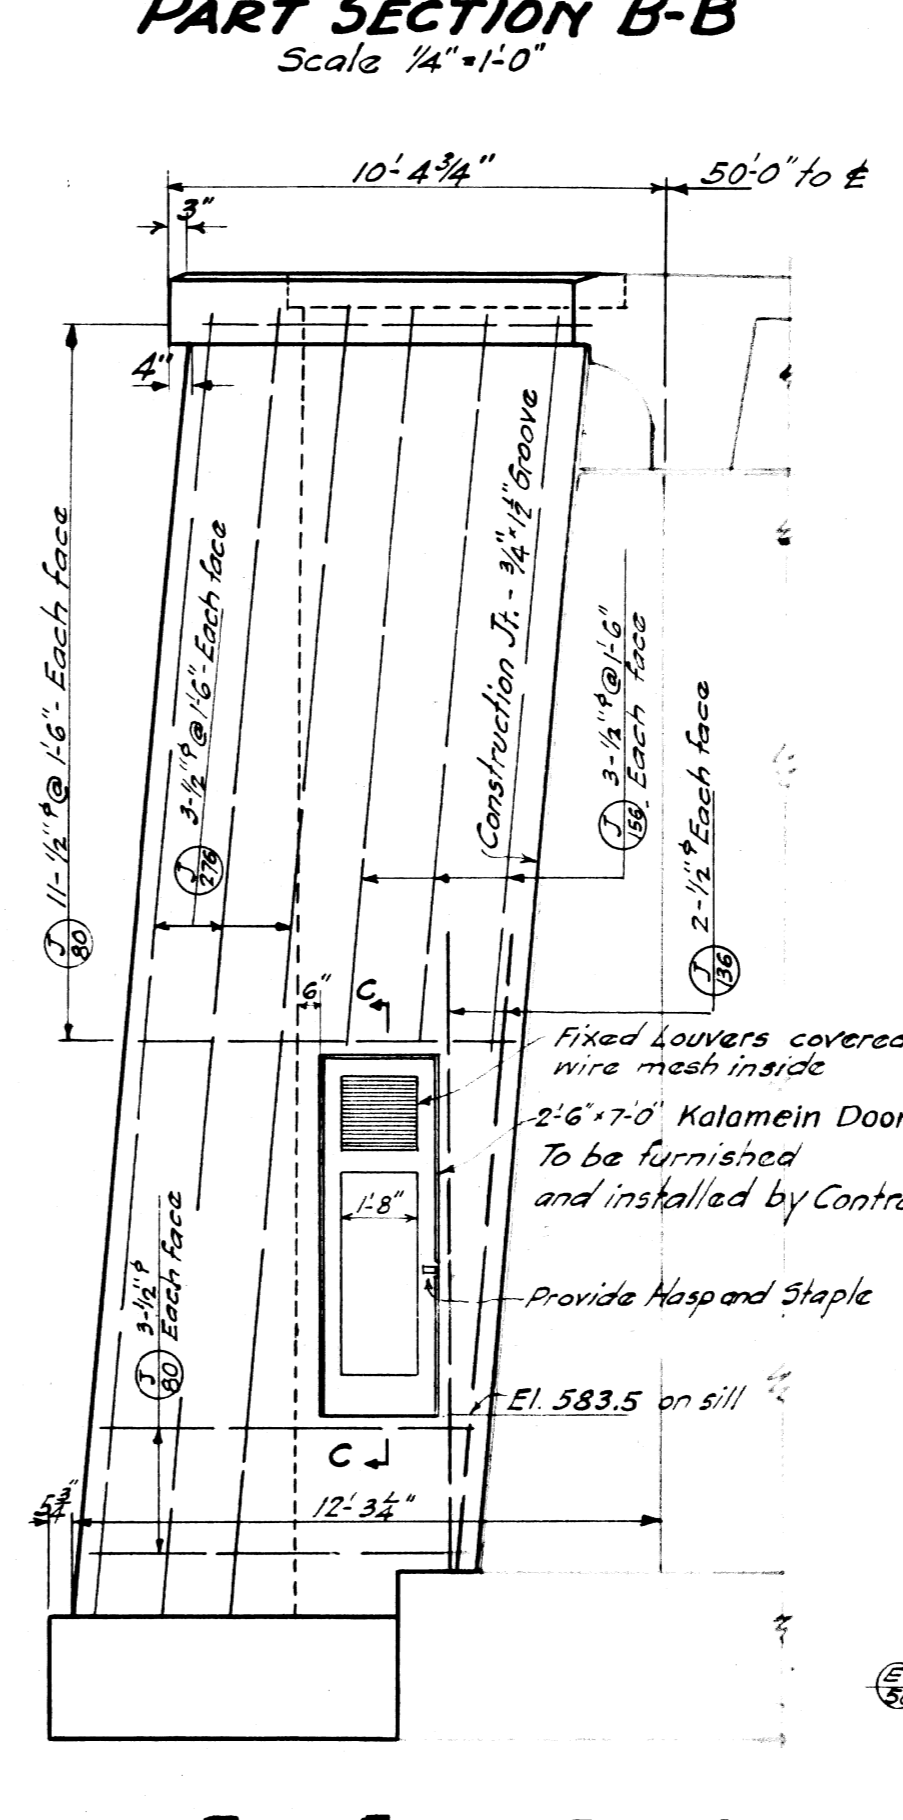 PART SECTION B-B
Scale 1/4" = 1'-0"
10'-4 3/4"
50'-0" to ℄
3"
4"
11-1/2"ᶲ @ 1'-6"- Each face
J
80
3-1/2"ᶲ @ 1'-6"- Each face
J
276
Construction Jt. - 3/4" x 1 1/2" Groove
3-1/2"ᶲ @ 1'-6"
Each face
J
156
2-1/2"ᶲ Each face
J
136
6"
C
Fixed Louvers covered
wire mesh inside
2'-6" x 7'-0" Kalamein Door
To be furnished
and installed by
1'-8"
3-1/2"ᶲ
Each face
J
80
Provide Hasp and Staple
El. 583.5 on sill
C
5 3/4"
12'-3 1/4"
E